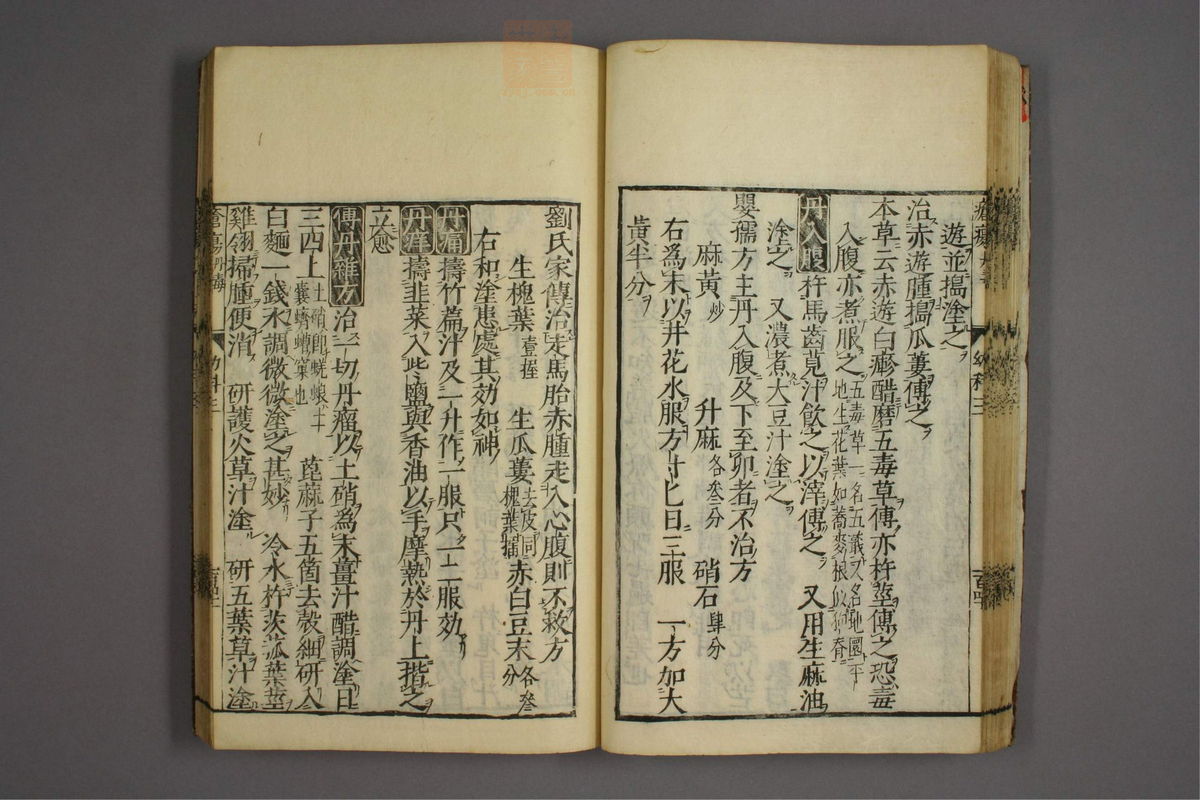 遊並搗塗之ヲ
治赤遊腫搗瓜蔞傅之ヲ
本草云赤遊白瘮醋磨五毒草傅亦杵莖傅之恐毒
入腹亦煮服之五毒草一名五蕺又名虵罔平
地生花葉如蕎麥根似狗脊
丹入腹 杵馬齒莧汁飲之以滓傅之 又用生麻油
塗之 又濃煮大豆汁塗之
嬰孺方主丹入腹及下至卵者不治方
麻黃炒 升麻各叄分 硝石肆分
右爲末以井花水服方寸匕日三服 一方加大
黃半分
劉氏家傳治走馬胎赤腫走入心腹則不救方
生槐葉壹握 生瓜蔞去皮同槐葉擂 赤白豆末各叄分
右和塗患處其効如神
丹痛 擣竹篇汁及一升作一服只一二服効
丹痒 擣韭菜入些鹽與香油以手摩熱於丹上揩之
立愈
傅丹雜方 治一切丹瘤以土硝爲末薑汁醋調塗日
三四上土硝即蜣蜋土裹蠐螬窠也 蓖麻子五箇去殼細研入
白麵一錢水調微微塗之甚妙 冷水杵茨菰葉莖
雞翎掃腫便消 研護火草汁塗 研五葉草汁塗
幼科三